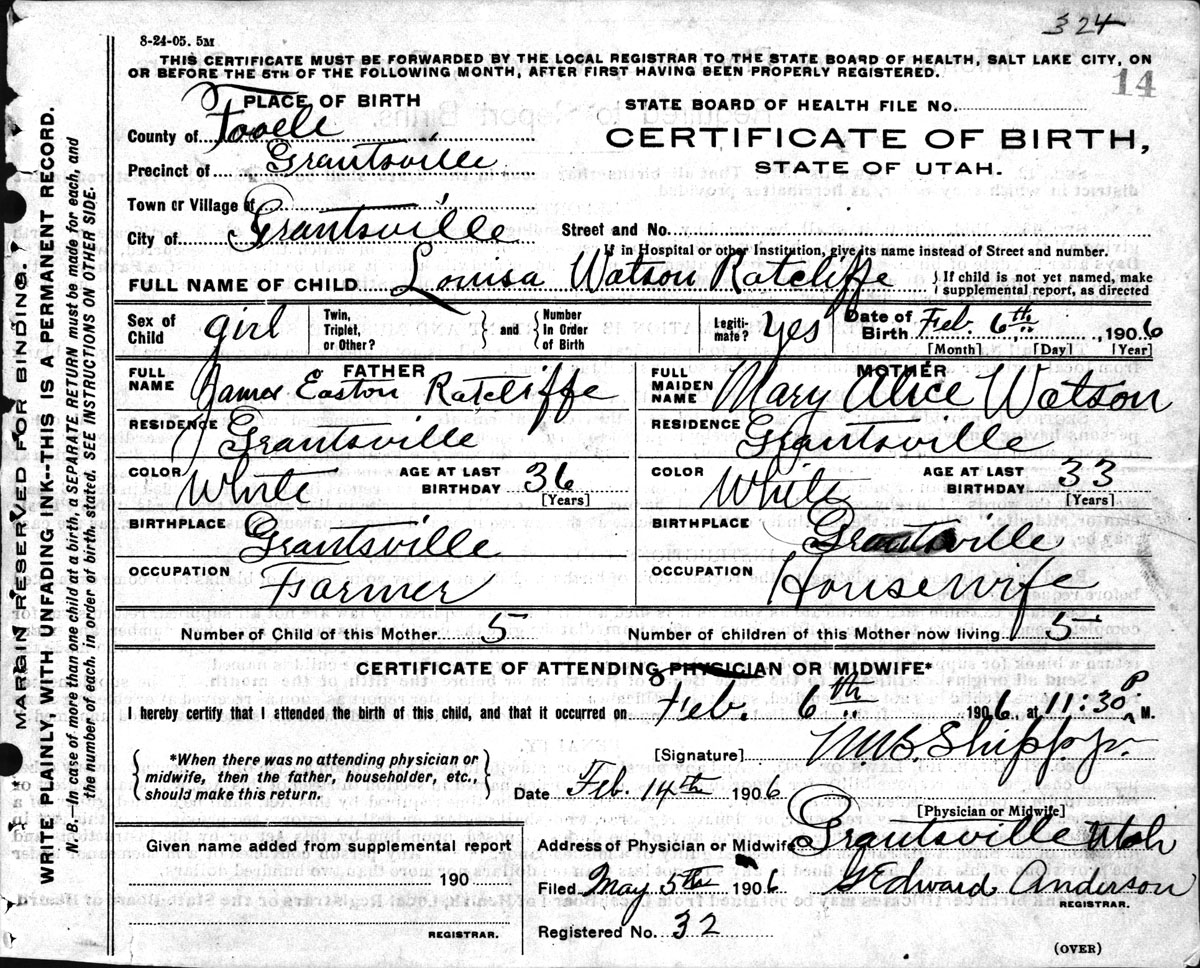 324
8-24-05. 5M
THIS CERTIFICATE MUST BE FORWARDED BY THE LOCAL REGISTRAR TO THE STATE BOARD OF HEALTH, SALT LAKE CITY, ON
OR BEFORE THE 5TH OF THE FOLLOWING MONTH, AFTER FIRST HAVING BEEN PROPERLY REGISTERED.
14
PLACE OF BIRTH
STATE BOARD OF HEALTH FILE NO.
County of Tooele
CERTIFICATE OF BIRTH,
Precinct of Grantsville
STATE OF UTAH.
Town or Village of
City of Grantsville
Street and No.
If in Hospital or other Institution, give its name instead of Street and number.
FULL NAME OF CHILD Louisa Watson Ratcliffe
If child is not yet named, make
supplemental report, as directed
Sex of Child girl Twin, Triplet, or Other? and Number In Order of Birth Legitimate? Yes Date of Birth Feb. 6th, 1906
[Month] [Day] [Year]
FATHER
MOTHER
FULL NAME James Easton Ratcliffe
FULL MAIDEN NAME Mary Alice Watson
RESIDENCE Grantsville
RESIDENCE Grantsville
COLOR White AGE AT LAST BIRTHDAY 36 [Years]
COLOR White AGE AT LAST BIRTHDAY 33 [Years]
BIRTHPLACE Grantsville
BIRTHPLACE Grantsville
OCCUPATION Farmer
OCCUPATION Housewife
Number of Child of this Mother 5
Number of children of this Mother now living 5
CERTIFICATE OF ATTENDING PHYSICIAN OR MIDWIFE*
I hereby certify that I attended the birth of this child, and that it occurred on Feb. 6th 1906, at 11:30 P. M.
*When there was no attending physician or
midwife, then the father, householder, etc.,
should make this return.
[Signature] M.B. Shipp Jr.
Date Feb. 14th 1906
[Physician or Midwife]
Given name added from supplemental report
190
REGISTRAR.
Address of Physician or Midwife Grantsville Utah
Filed May 5th 1906 Edward Anderson
REGISTRAR.
Registered No. 32
(OVER)
MARGIN RESERVED FOR BINDING.
WRITE PLAINLY, WITH UNFADING INK--THIS IS A PERMANENT RECORD.
N. B.—In case of more than one child at a birth, a SEPARATE RETURN must be made for each, and
the number of each, in order of birth stated. SEE INSTRUCTIONS ON OTHER SIDE.